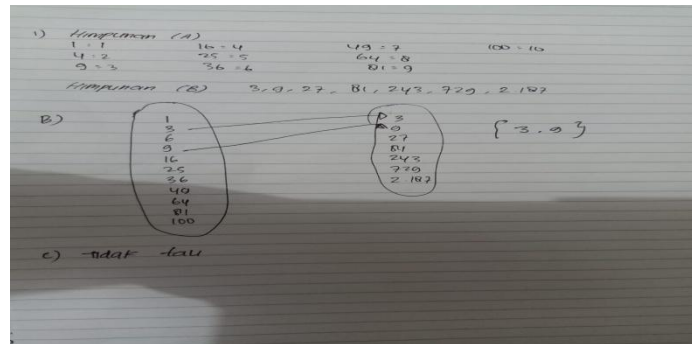 1) Himpunan (A)
1 = 1 16 = 4 49 = 7 100 = 10
4 = 2 25 = 5 64 = 8
9 = 3 36 = 6 81 = 9
Himpunan (B) 3, 9, 27, 81, 243, 729, 2.187
B)
1
3
6
9
16
25
36
49
64
81
100
3
9
27
81
243
729
2.187
{ 3, 9 }
c) tidak tau